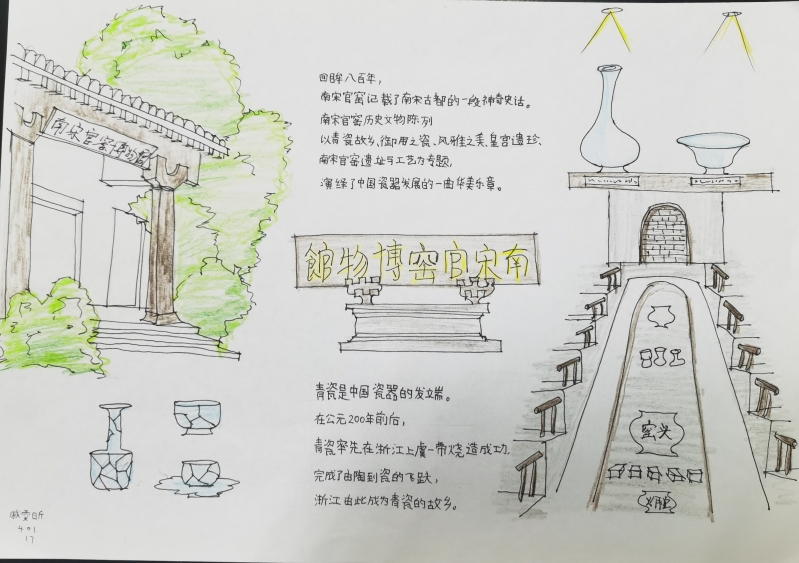 南宋官窑博物館
回眸八百年，
南宋官窑记载了南宋古都的一段神奇史话。
南宋官窑历史文物陈列
以青瓷故乡、御用之瓷、风雅之美、皇宫遗珍、
南宋官窑遗址与工艺为专题，
演绎了中国瓷器发展的一曲华美乐章。
館物博窑官宋南
青瓷是中国瓷器的发端。
在公元200年前后，
青瓷率先在浙江上虞一带烧造成功，
完成了由陶到瓷的飞跃，
浙江由此成为青瓷的故乡。
窑头
火膛
戚雯昕
401
17